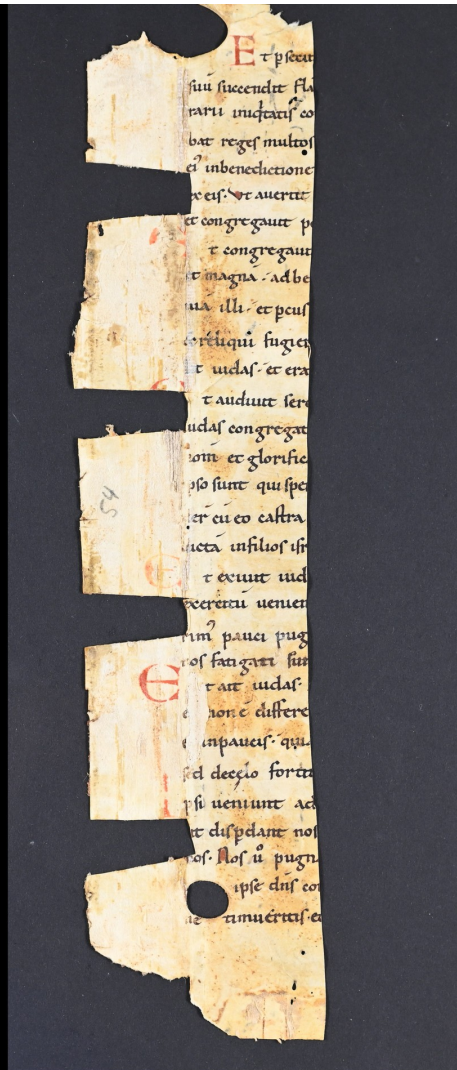 Et psecut
suū succendit fla
rarii iniqitatis co
bat reges multos
ei inbenedictione
ex eis· et avertit
et congregavit po
t congregavit
et magnā· adbe
viā illi· et pcus
reliqui fugier
et iudas· et era
t audivit sero
iudas congregat
nom et glorific
pso sunt qui sper
er eū eo castra
victā infilios isr
t exivit iud
exercitū venien
pauci pug
nos fatigati sum
Et ait iudas·
non ē differe
inpaucis· qui
sed de cęlo fortit
ipsi veniunt ad
ut dispdant nos
nos· Nos ū pugn
ipse dns con
ne timueritis· eo
54